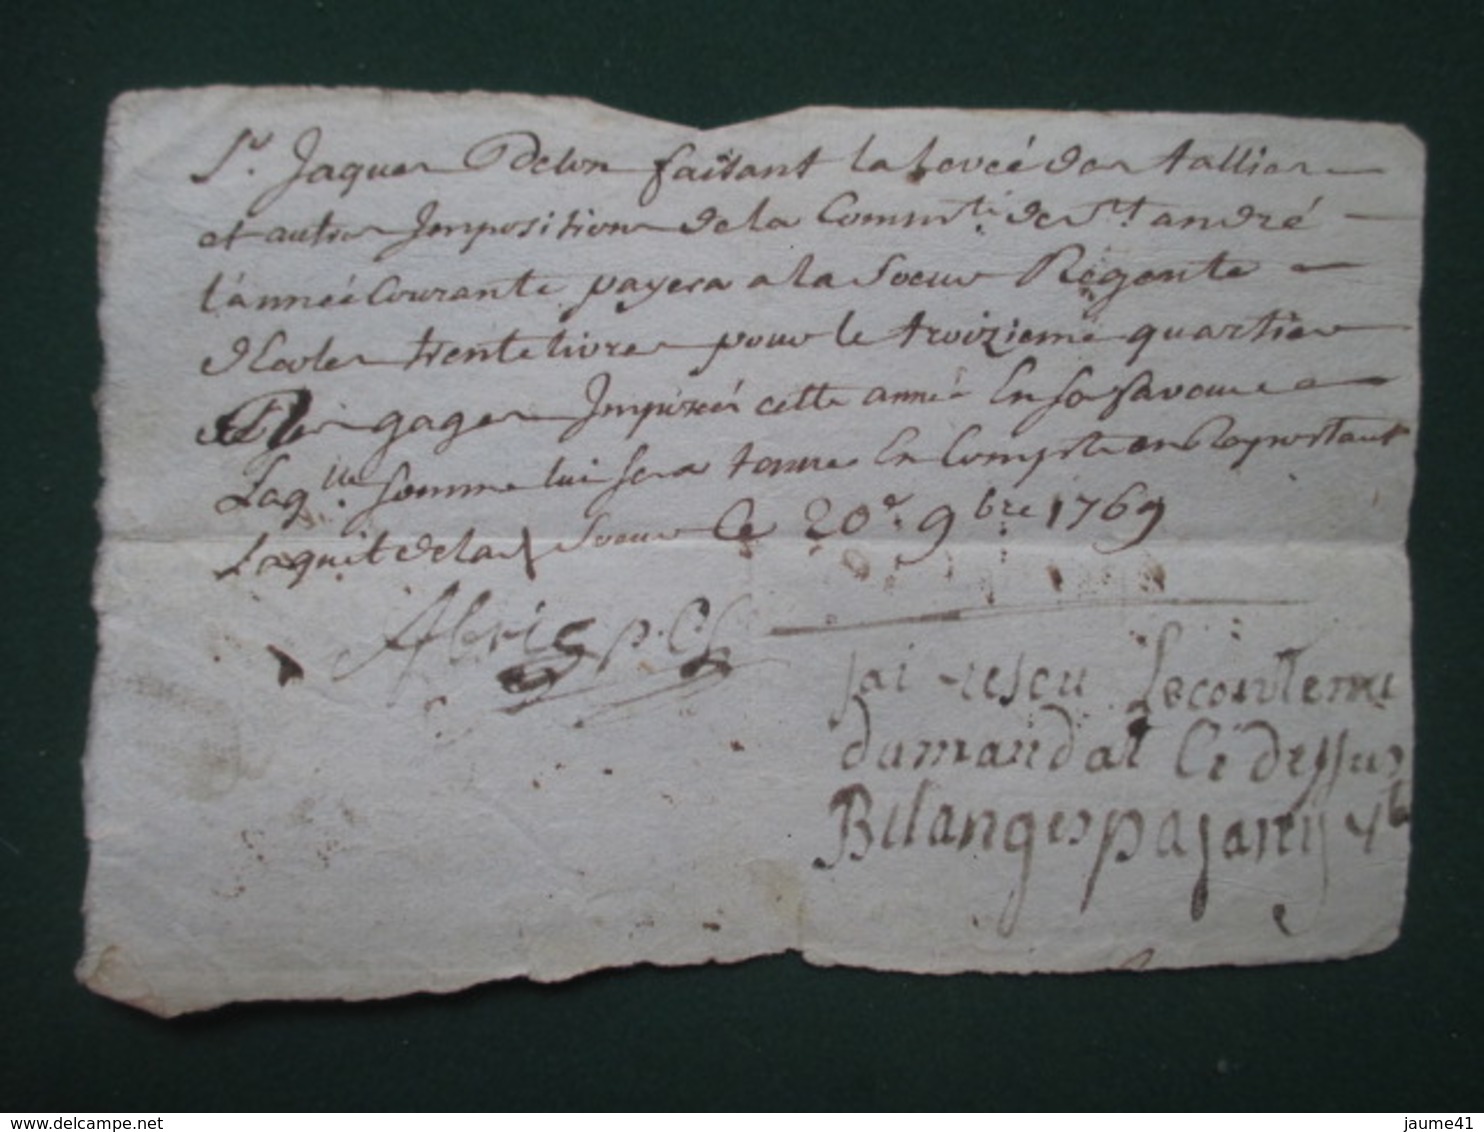 Sr. Jaques Delon faisant la levée des tallies
et autres Impositions de la Commté. de St. andré
l'année Courante payera a la Soeur Régente
d'Ecoles trente livres pour le troizieme quartier
gages Imposés cette année En sa faveur
Laqlle. somme lui sera tenue En Compte en Raportant
Laquit de la Soeur Ce 20e. 9bre 1769
Abric p. Cl
jai rescu Le contenu
du mandat Ci dessus
Belanges
www.delcampe.net
jaume41